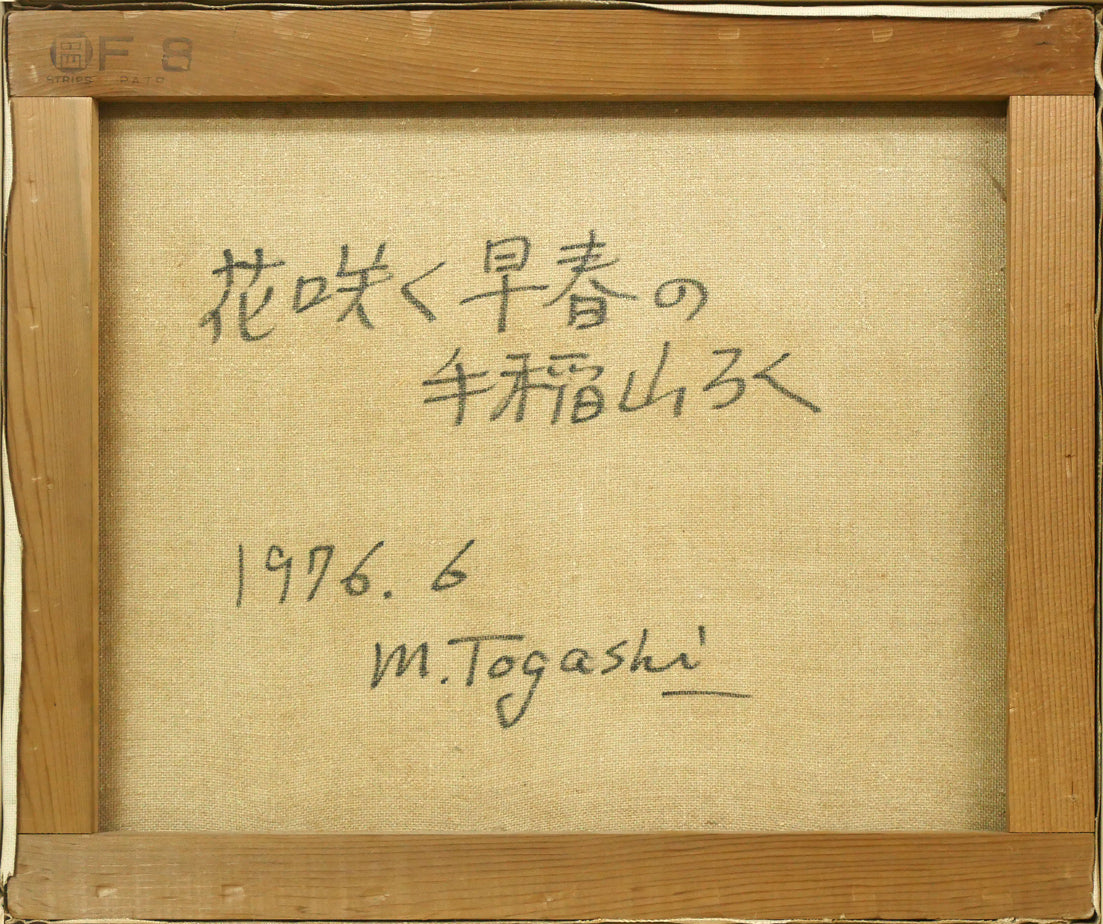 岡 F 8
STRIPS PATP
花咲く早春の
手稲山ろく
1976. 6
M. Togashi